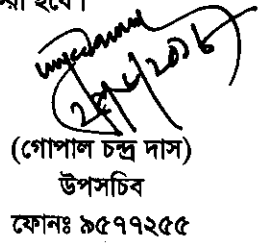 হবে।
(গোপাল চন্দ্র দাস)
উপসচিব
ফোনঃ ৯৫৭৭২৫৫